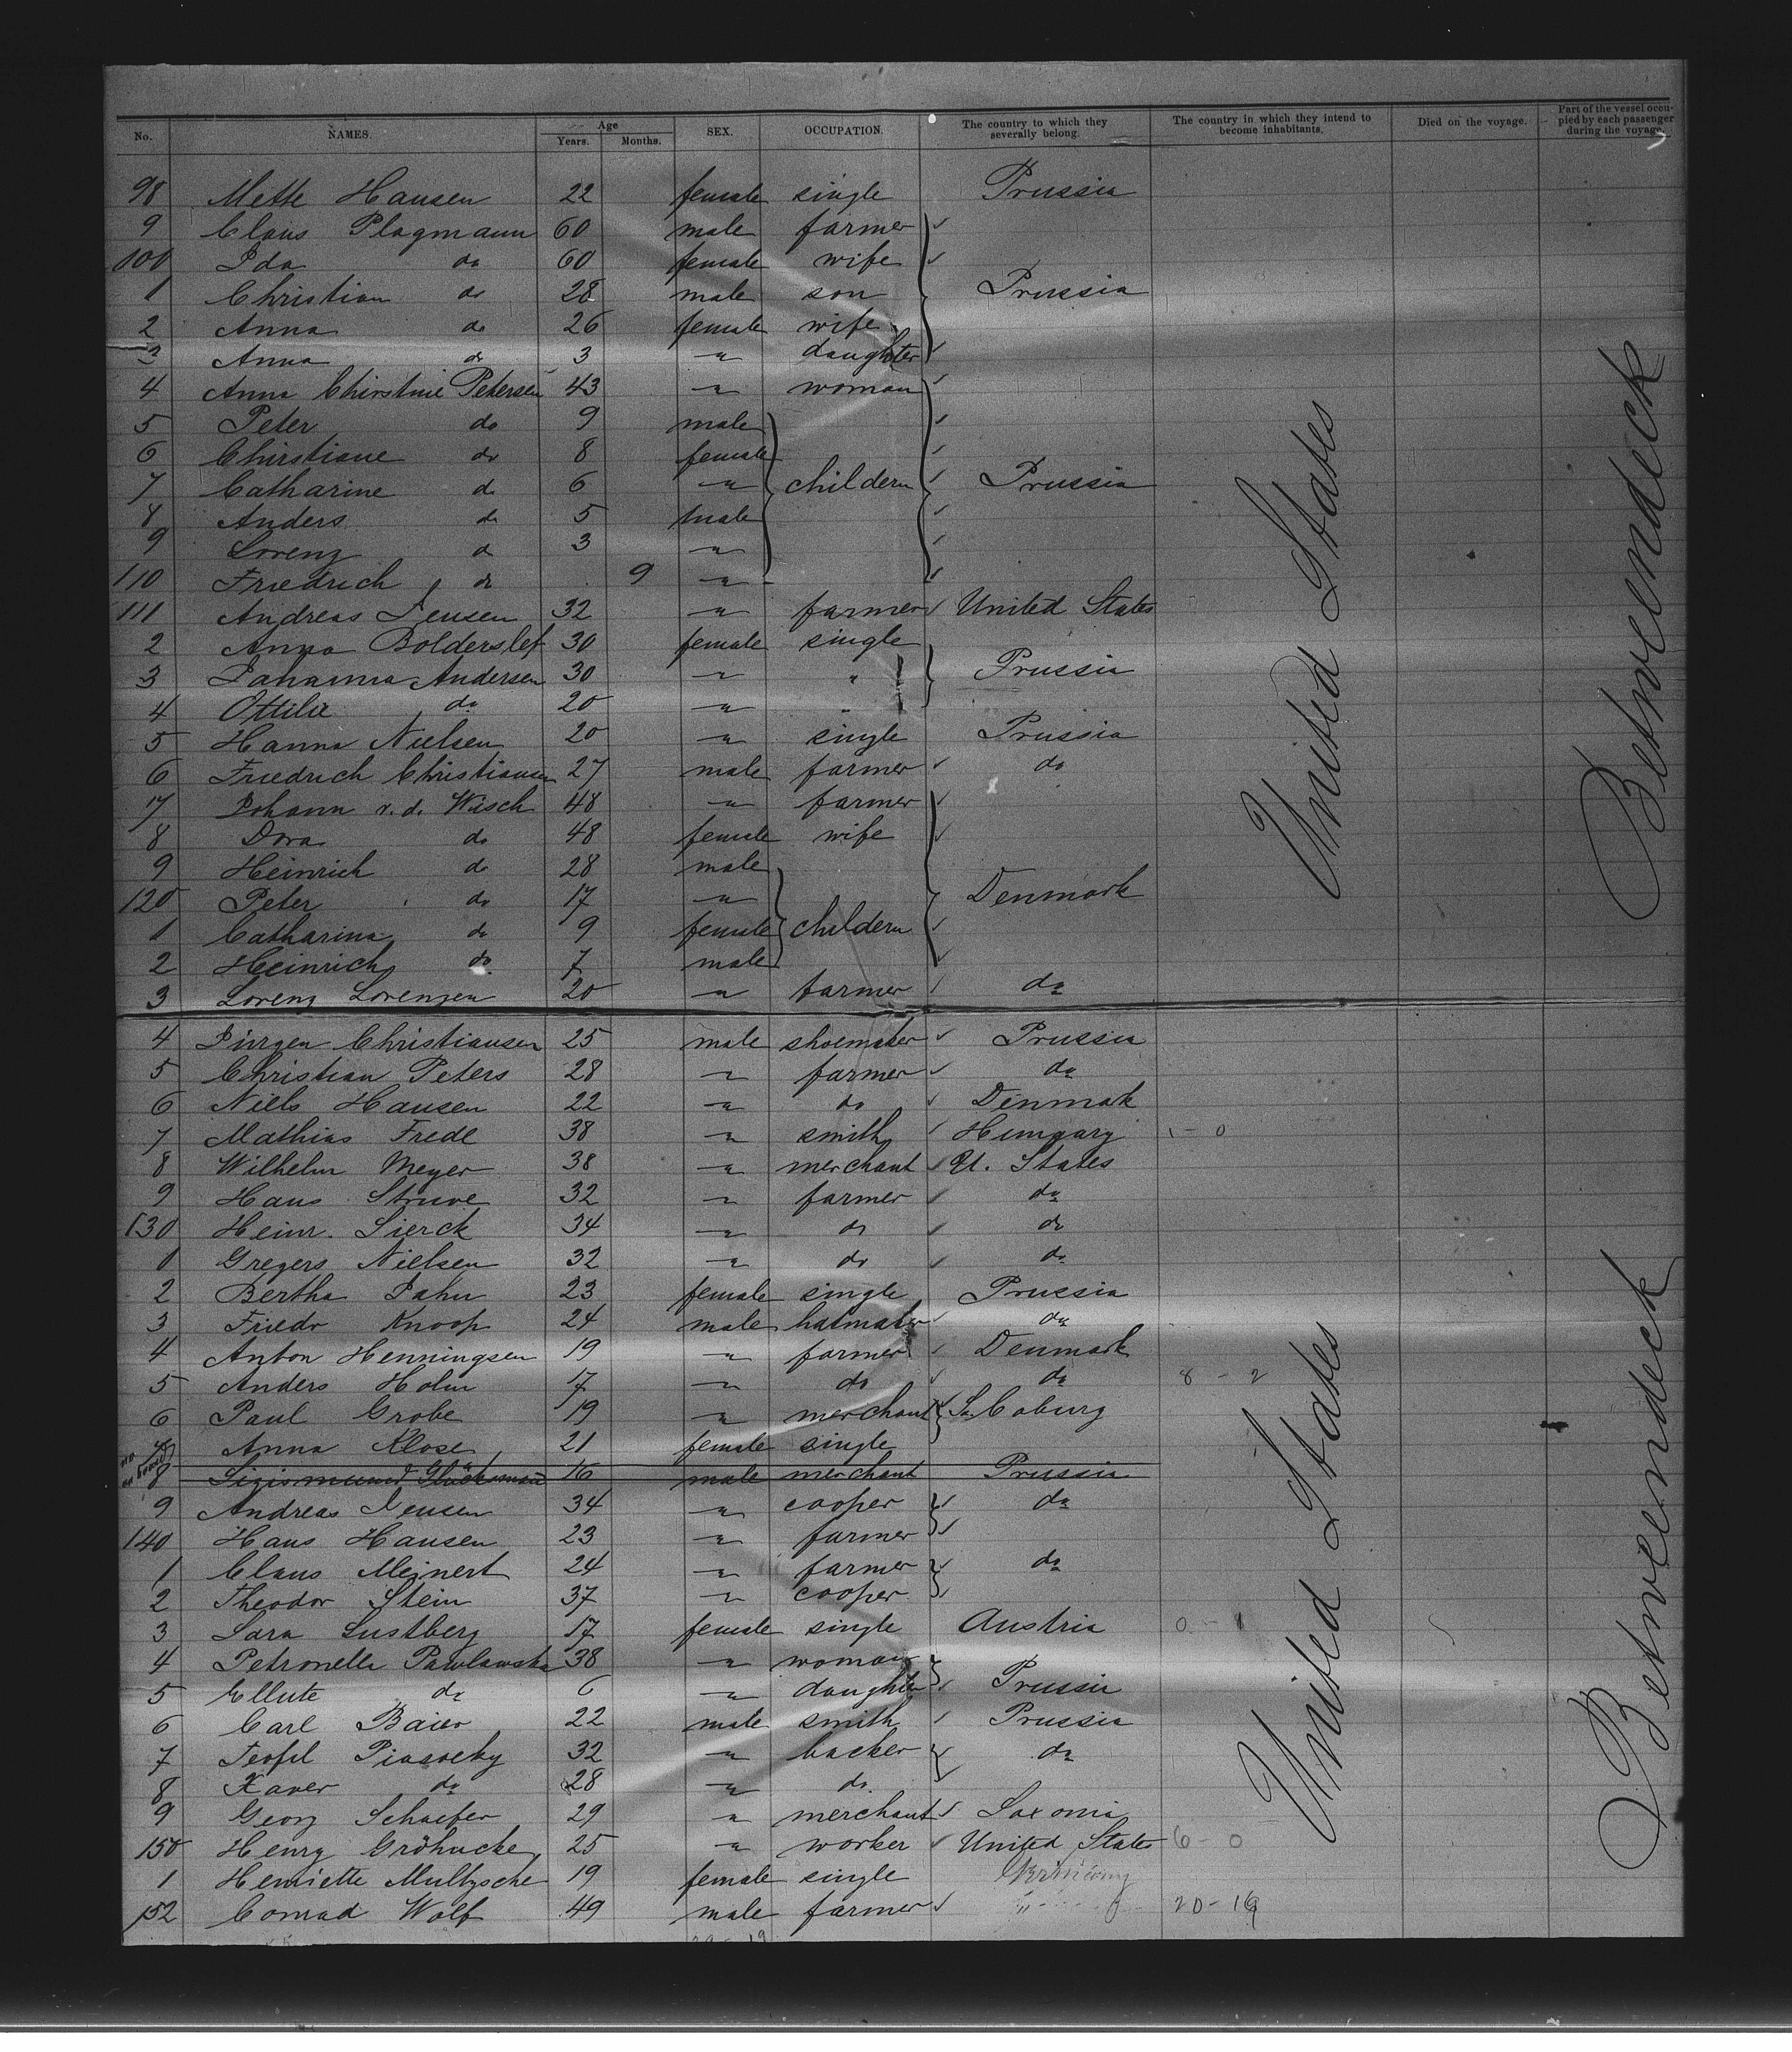 No. NAMES. Age Years. Months. SEX. OCCUPATION. The country to which they severally belong. The country in which they intend to become inhabitants. Died on the voyage. Part of the vessel occupied by each passenger during the voyage.
98 Mette Hansen 22 female single Prussia
9 Claus Plagmann 60 male farmer
100 Ida do 60 female wife
1 Christian do 28 male son Prussia
2 Anna do 26 female wife
3 Anna do 3 " daughter
4 Anna Chirstine Petersen 43 " woman
5 Peter do 9 male
6 Chirstiane do 8 female
7 Catharine do 6 " childern Prussia
8 Anders do 5 male
9 Lorenz do 3 "
110 Friedrich do 9 "
111 Andreas Jensen 32 " farmer United States
2 Anna Bolderslef 30 female single
3 Johanna Andersen 30 " " Prussia
4 Ottilie do 20 " "
5 Hanna Nielsen 20 " single Prussia
6 Friedrich Christiansen 27 male farmer do
17 Johann v. d. Wisch 48 " farmer
8 Dora do 48 female wife
9 Heinrich do 28 male
120 Peter do 17 " Denmark
1 Catharina do 9 female childern
2 Heinrich do 7 male
3 Lorenz Lorenzen 20 " farmer do
4 Jürgen Christiansen 25 male shoemaker Prussia
5 Christian Peters 28 " farmer do
6 Niels Hansen 22 " do Denmak
7 Mathias Fredl 38 " smith Hungary 1 - 0
8 Wilhelm Meyer 38 " merchant U. States
9 Hans Struve 32 " farmer do
130 Heinr. Sierck 34 " do do
1 Gregers Nielsen 32 " do do
2 Bertha Jahn 23 female single Prussia
3 Friedr Knoop 24 male hatmaker do
4 Anton Henningsen 19 " farmer Denmark
5 Anders Holm 17 " do do 8 - 2
6 Paul Grobe 19 " merchant S. Coburg
7 Anna Klose 21 female single
8 Sigismund Glücksmann 16 male merchant Prussia
9 Andreas Jensen 34 " cooper do
140 Hans Hansen 23 " farmer
1 Claus Meinert 24 " farmer do
2 Theodor Stein 37 " cooper
3 Sara Lustberg 17 female single Austria 0 - 1
4 Petronella Pawlawska 38 " woman
5 Ellute do 6 " daughter Prussia
6 Carl Baier 22 male smith Prussia
7 Teofil Piasecky 32 " backer do
8 Xaver do 28 " do
9 Georg Schaefer 29 " merchant Saxonia
150 Henry Gröhncke 25 " worker United States 6 - 0
1 Henriette Multzsche 19 female single Germany
152 Conrad Wolf 49 male farmer " 20 - 19
United States
Betweendeck
United States
Betweendeck